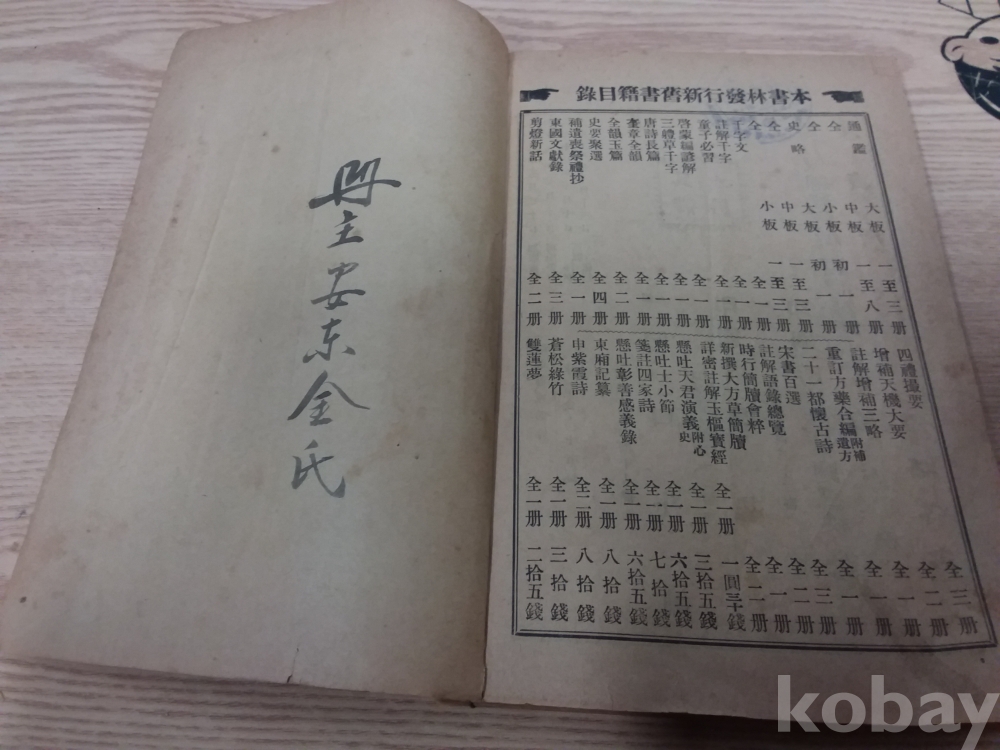 冊主安東金氏
本書林發行新舊書籍目錄
通鑑 大板 一至三册
全 中板 一至八册
全 小板 初一册
史略 大板 初一册
全 中板 一至三册
全 小板 一至三册
千字文 全一册
註解千字 全一册
童子必習 全一册
啓蒙編諺解 全一册
三體草千字 全一册
唐詩長篇 全一册
奎章全韻 全一册
全韻玉篇 全二册
史要聚選 全四册
補遺喪祭禮抄 全一册
東國文獻錄 全三册
剪燈新話 全二册
四禮撮要 全三册
增補天機大要 全二册
註解增補三略 全一册
重訂方藥合編附補遺方 全一册
二十一都懷古詩 全一册
宋書百選 全三册
註解語錄總覽 全二册
時行簡牘會粹 全一册
新撰大方草簡牘 全二册
詳密註解玉樞寶經 全一册 一圓三十錢
懸吐天君演義附心史 全一册 三拾五錢
懸吐士小節 全一册 六拾五錢
箋註四家詩 全一册 七拾錢
懸吐彰善感義錄 全一册 六拾五錢
東廂記纂 全一册 八拾錢
申紫霞詩 全二册 八拾錢
蒼松綠竹 全一册 三拾錢
雙蓮夢 全一册 二拾五錢
kobay